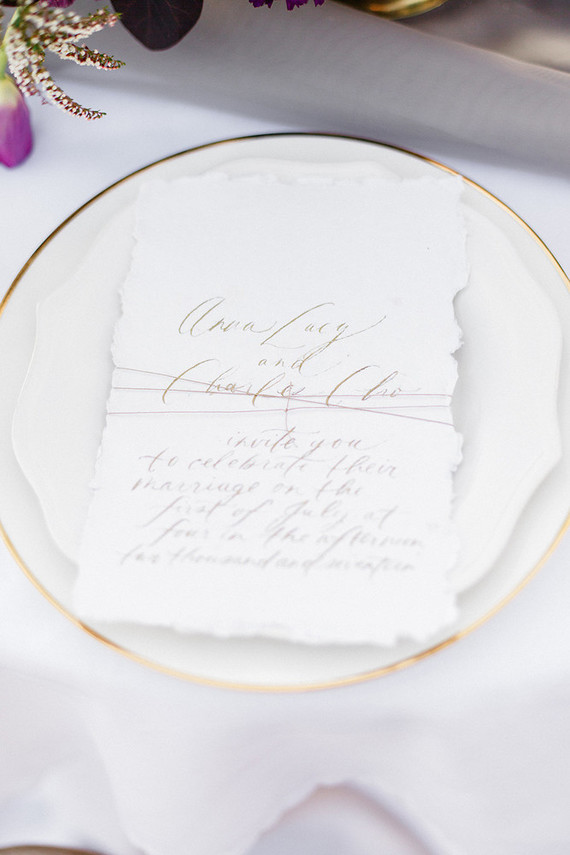 Anna Lucy
and
Charles Cho
invite you
to celebrate their
marriage on the
first of July at
four in the afternoon
two thousand and seventeen